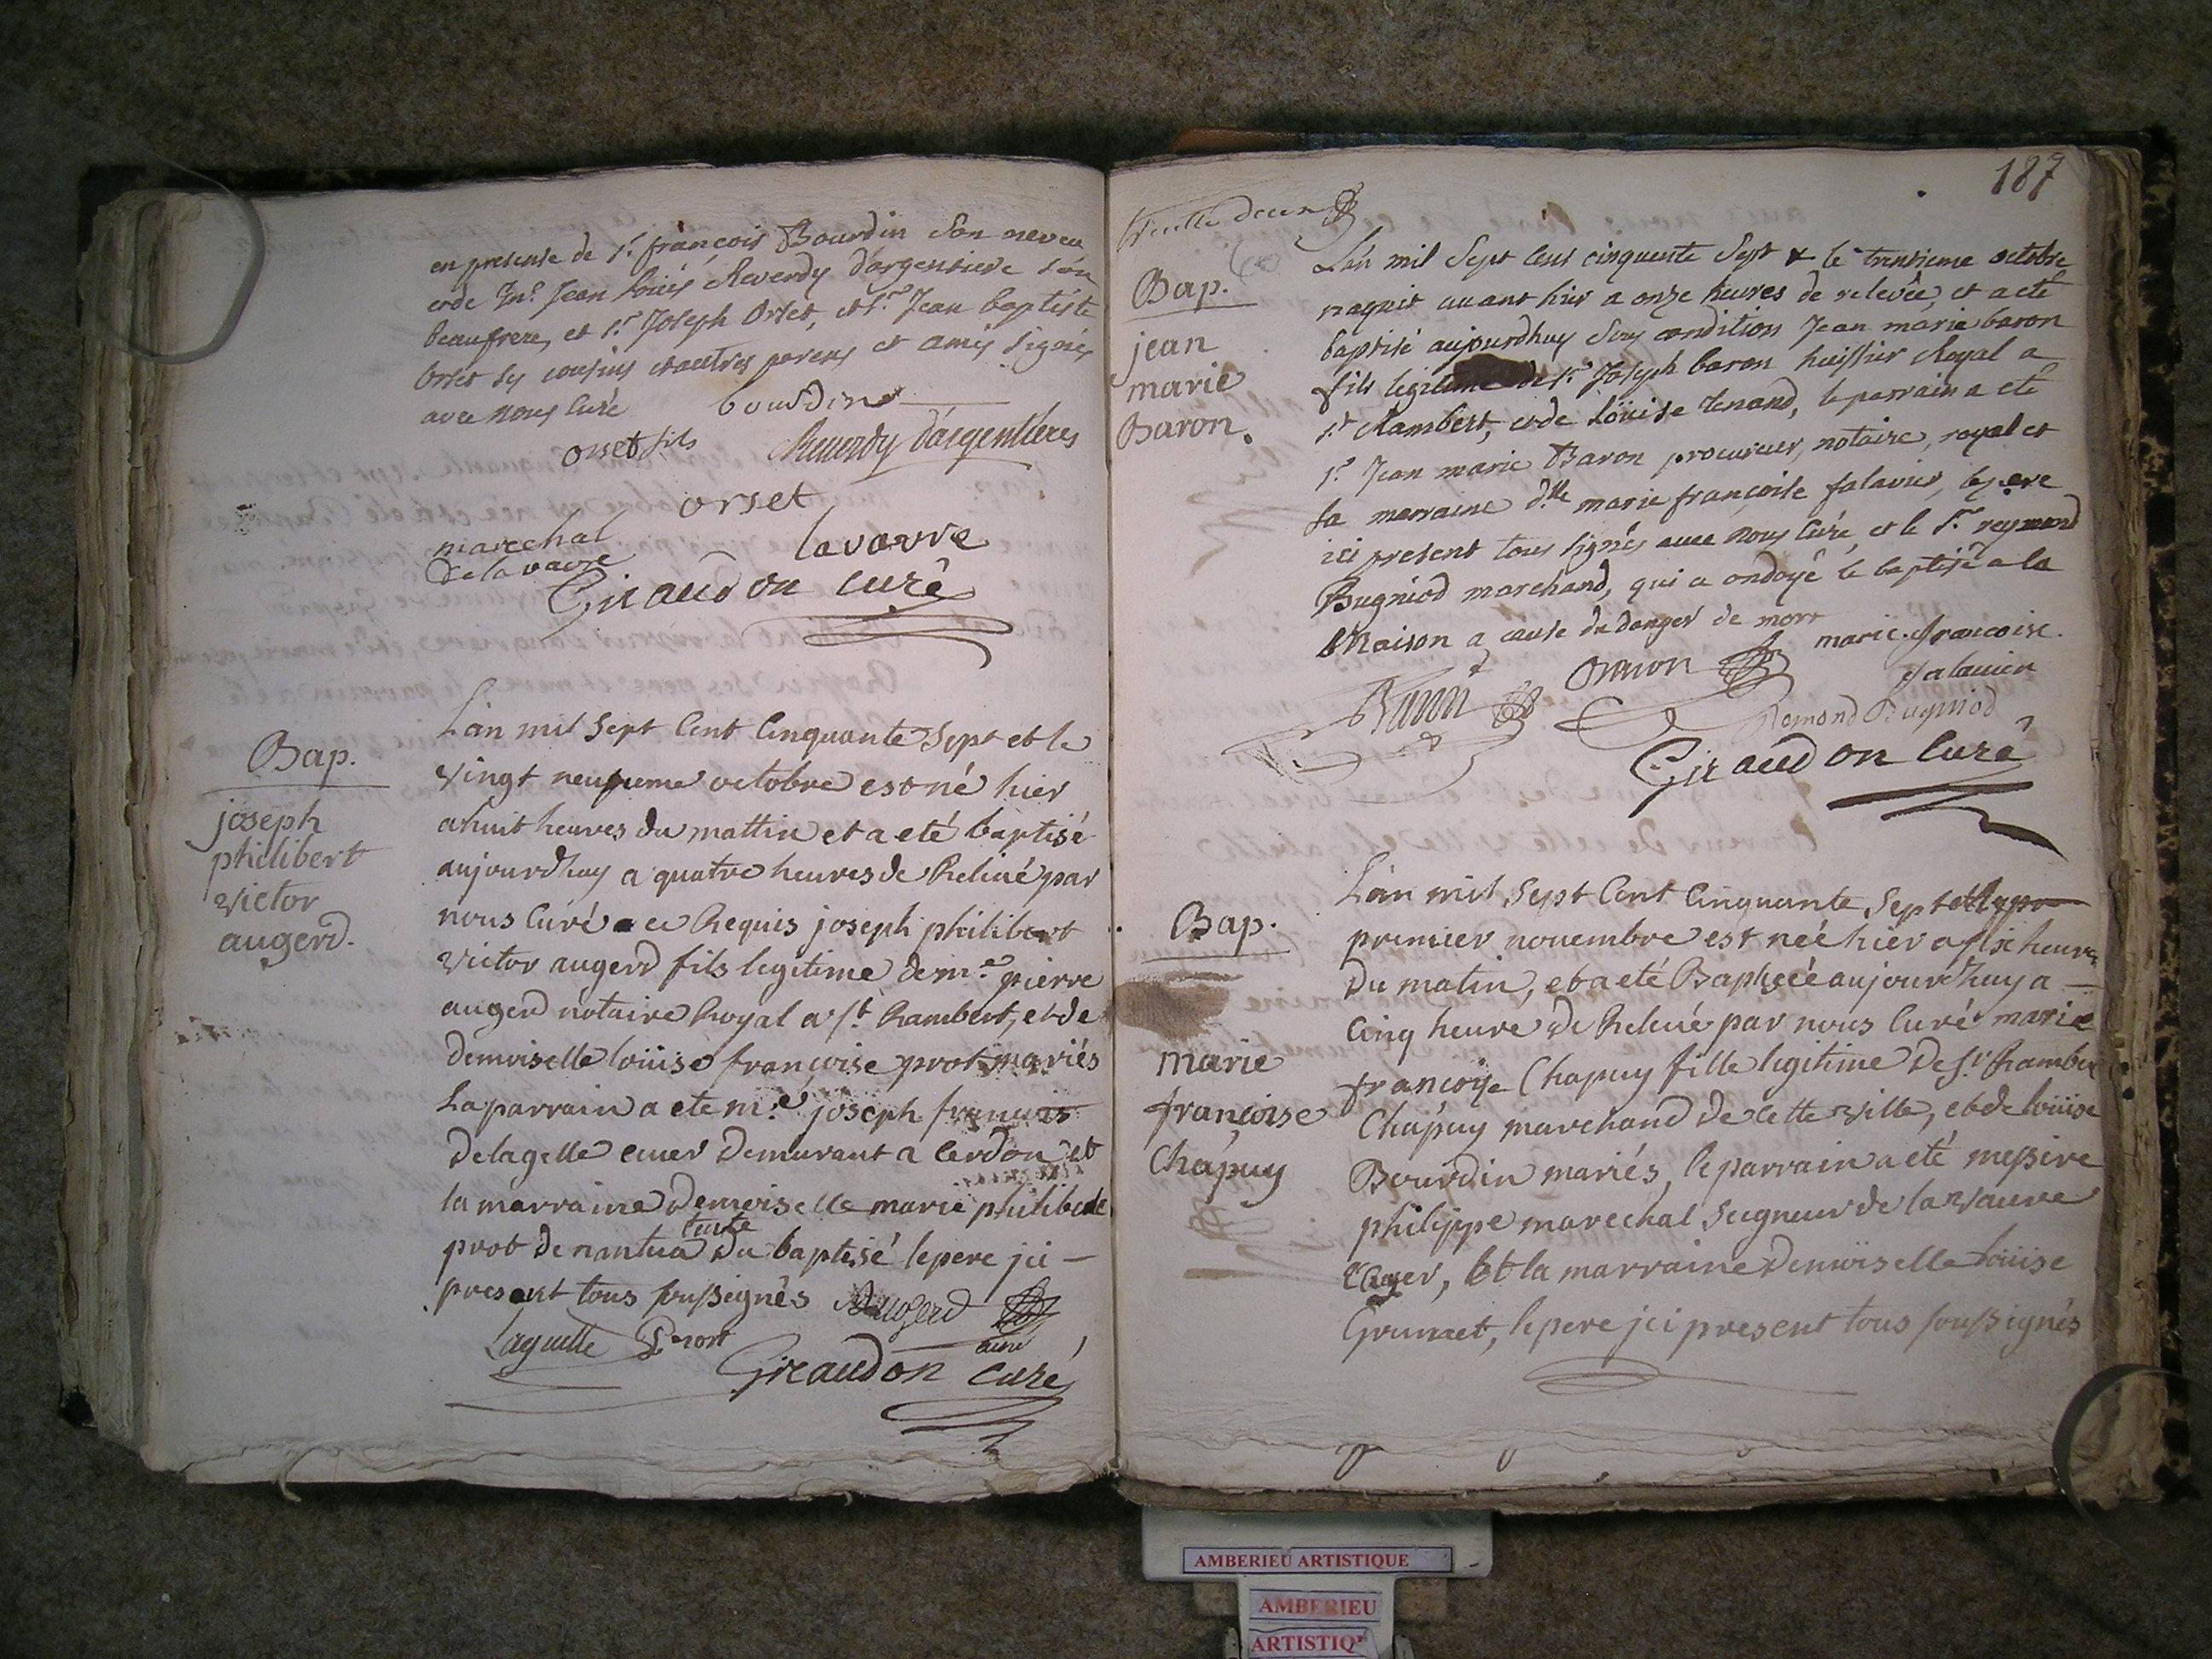 en presense de Sr. françois Bourdin Son neveu
et de Jean Loüis Reverdy d'argentiere Son
beaufrere, et Sr. Joseph Orset, et Sr. Jean baptiste
Orset ses cousins et autres parens et amis Signés
avec nous Curé bourdin
orset fils Reverdy d'argentieres
orset
marechal
de la vavre
lavavre
Giraudon curé
Bap.
joseph
philibert
victor
augerd.
L'an mil Sept Cent Cinquante Sept et le
vingt neuvieme octobre est né hier
a huit heures du mattin et a eté baptisé
aujourdhuy a quatre heures de Relevé par
nous Curé Requis joseph philibert
victor augerd fils legitime de me. pierre
augerd notaire Royal a St. Rambert, et de
demoiselle loüise françoise prot mariés
La parrain a ete me. joseph francois
Delagelle demurant a Cerdon et
la marraine Demoiselle marie philiberte
prot de nantua tante Du baptisé le pere jci
present tous soussignés Augerd
Laguette Prost
Giraudon curé
187
Bap.
jean
marie
Baron.
L'an mil Sept Cens cinquante Sept & le trentieme octobre
naquit avant hier a onze heures de relevée, et a eté
baptisé aujourdhuy Sous condition Jean marie baron
fils legitime de Sr. Joseph baron huissier Royal a
St. Rambert, et de Loüise tenand, le parrain a eté
Sr. Jean marie Baron procureur, notaire, royal et
la marraine dlle marie françoise falavier, le pere
ici present tous signés avec nous Curé, et le Sr. reymond
Bugniod marchand, qui a ondoyé le baptisé a la
Maison a cause du danger de mort
Baron marie françoise
falavier
Remond Bugniod
Giraudon Curé
Bap.
marie
françoise
Chapuy
L'an mil Sept Cent Cinquante Sept
premier novembre est neé hier a six heures
du matin, et a eté aujourdhuy a
Cinq heure de Relevé par nous Curé marie
françoise Chapuy fille legitime de Sr. Rambert
Chapuy marchand de Cette ville, et de loüise
Bourdin mariés, le parrain a eté messire
philippe marechal Seigneur de la vavre
Et la marraine Demoiselle loüise
Grumet, le pere jci present tous soussignés
AMBERIEU ARTISTIQUE
AMBERIEU
ARTISTIQ